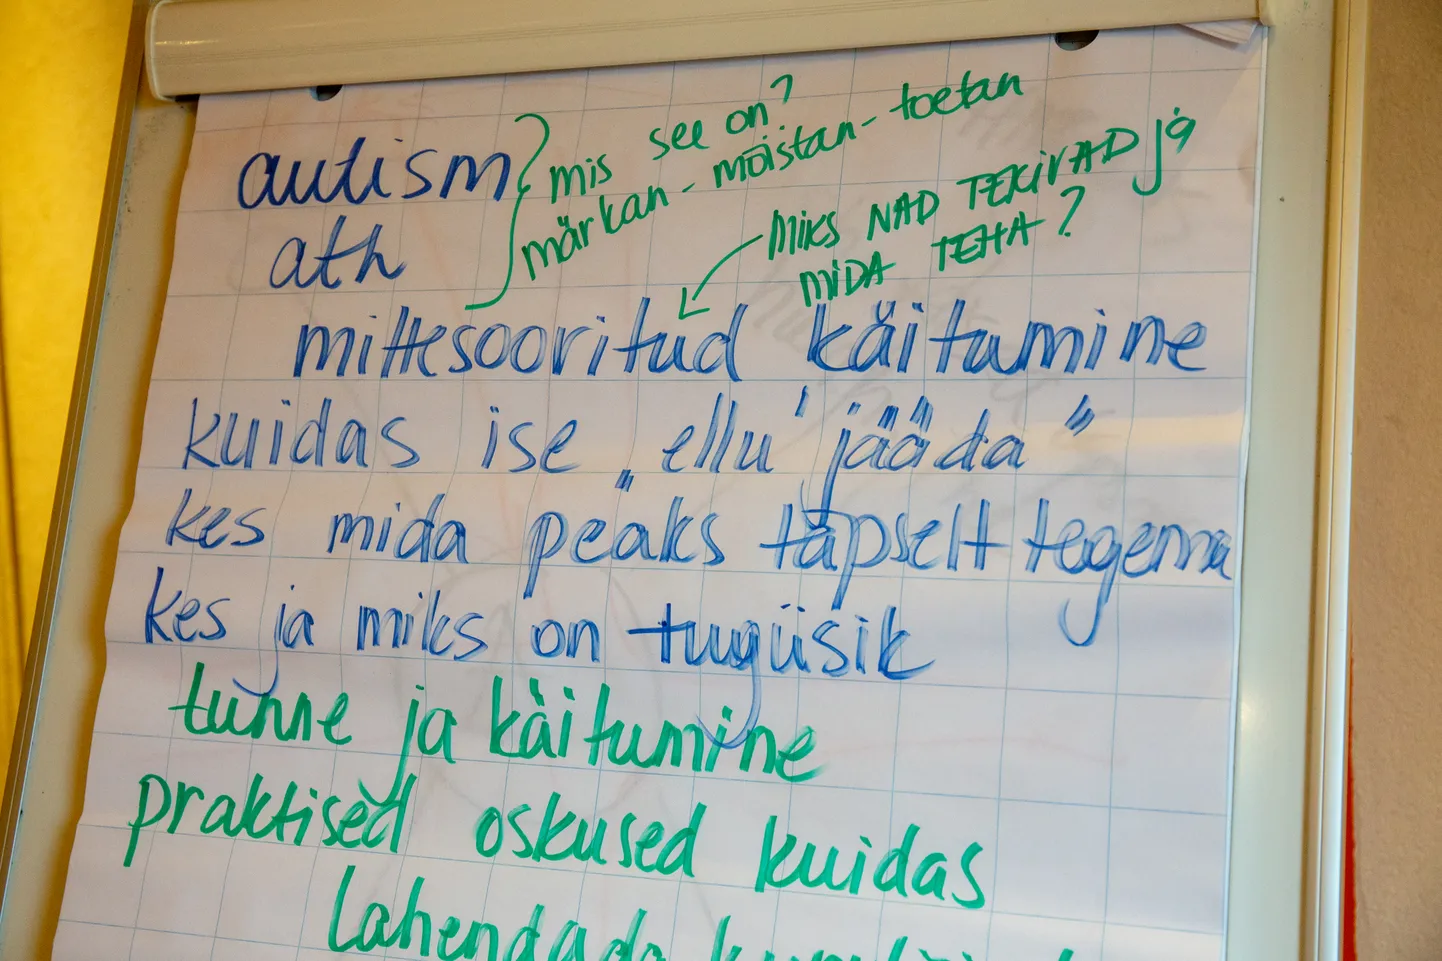 autism
ath
mis see on?
märkan - mõistan - toetan
MIKS NAD TEKIVAD jä
MIDA TEHA?
mittesooritud käitumine
kuidas ise „ellu jääda”
kes mida peaks täpselt tegema
kes ja miks on tugiisik
tunne ja käitumine
praktised oskused kuidas
lahendada